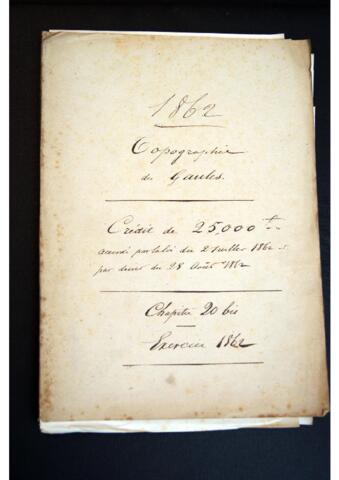 1862
Topographie
des Gaules.
Crédit de 25,000 f
accordé par la loi du 2 Juillet 1862 et
par décret du 28 Août 1862
Chapitre 20 bis
Exercice 1862